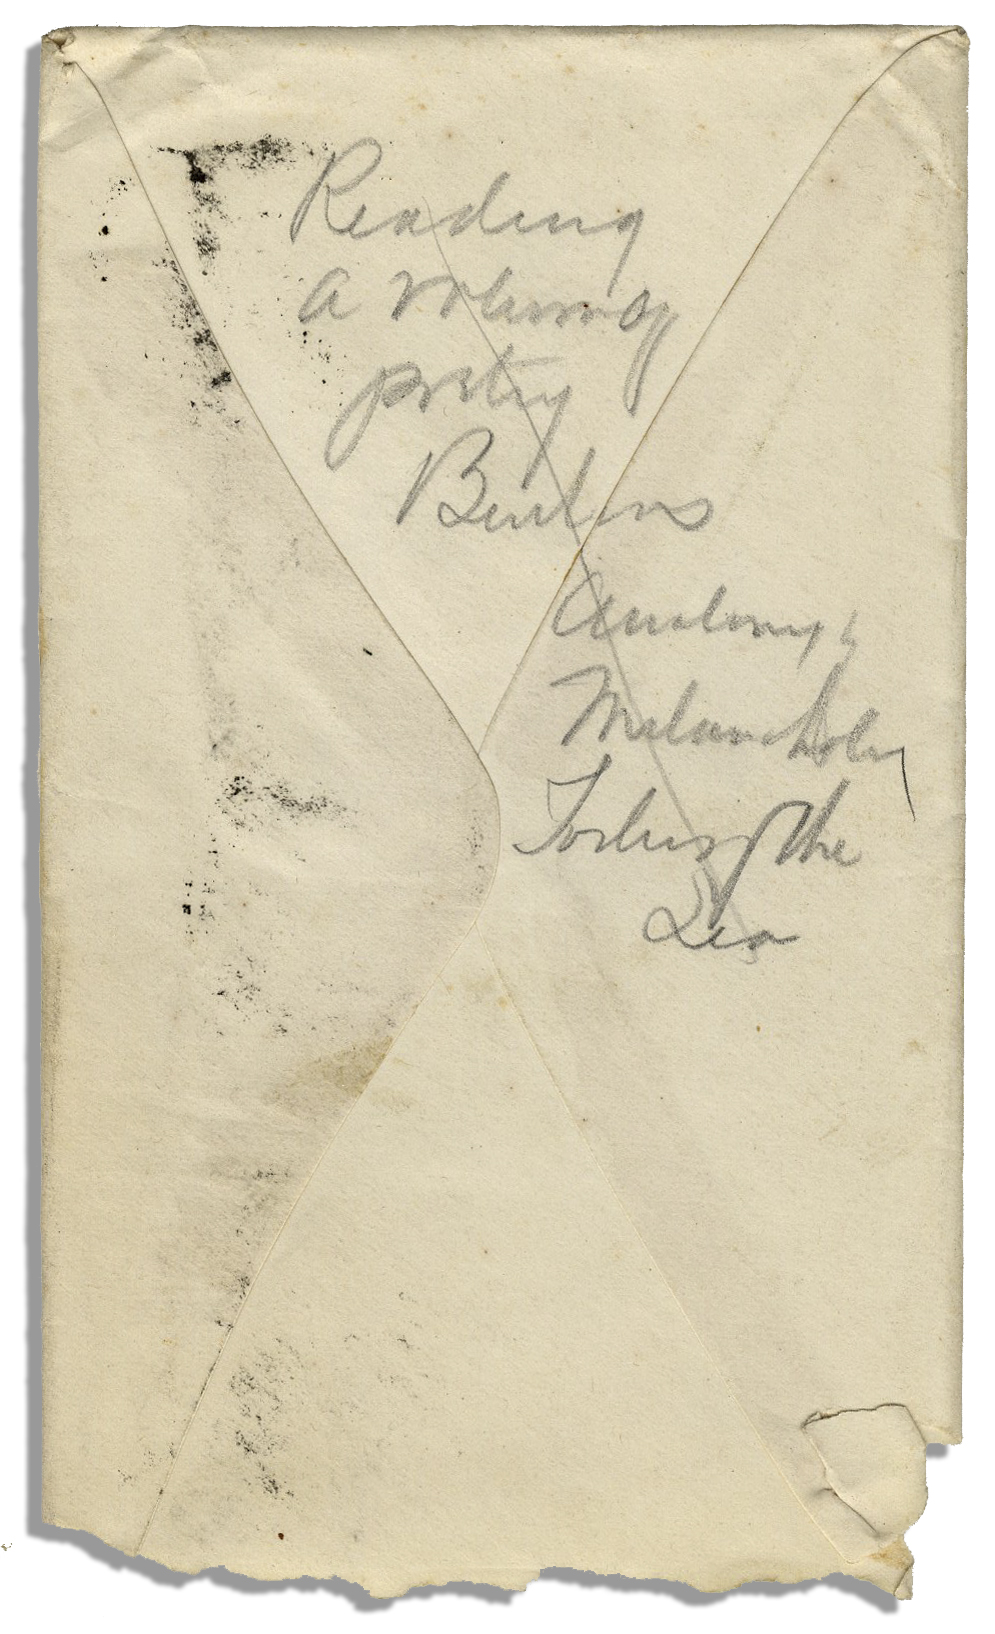 Reading
A volume of
poetry
Burtons
Anatomy of
Melancholy
Toilers of the
Sea